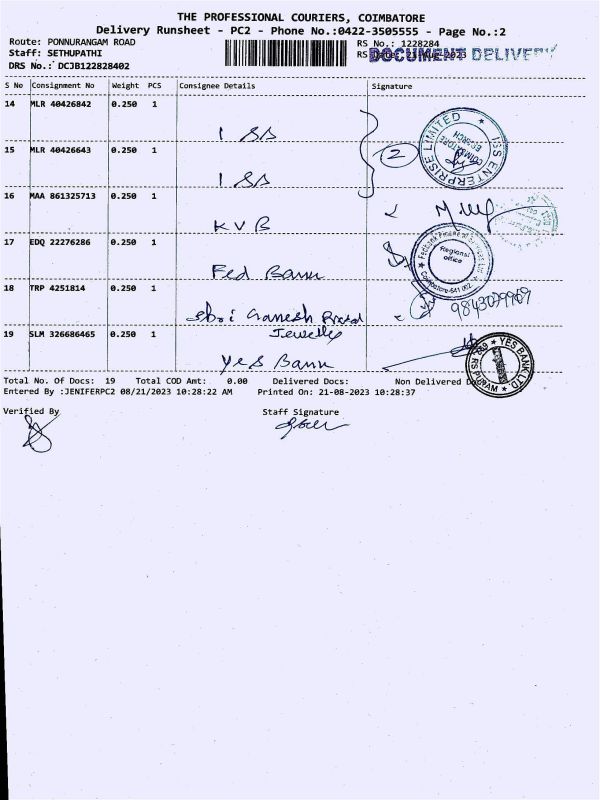 THE PROFESSIONAL COURIERS, COIMBATORE
Delivery Runsheet - PC2 - Phone No.:0422-3505555 - Page No.:2
Route: PONNURANGAM ROAD
RS No.: 1228284
Staff: SETHUPATHI
DOCUMENT DELIVERY
DRS No.: DCJB122828402
S No Consignment No Weight PCS Consignee Details Signature
14 MLR 40426842 0.250 1
15 MLR 40426643 0.250 1
2
ENTERPRISE LIMITED
COIMBATORE
16 MAA 861325713 0.250 1 KVB
17 EDQ 22276286 0.250 1 Fed Bank
Regional office
Coimbatore-641 002
18 TRP 4251814 0.250 1 Ganesh
Jewelley
19 SLM 326686465 0.250 1 Yes Bank
YES BANK LTD
RS PURAM
Total No. Of Docs: 19 Total COD Amt: 0.00 Delivered Docs: Non Delivered
Entered By :JENIFERPC2 08/21/2023 10:28:22 AM Printed On: 21-08-2023 10:28:37
Verified By Staff Signature